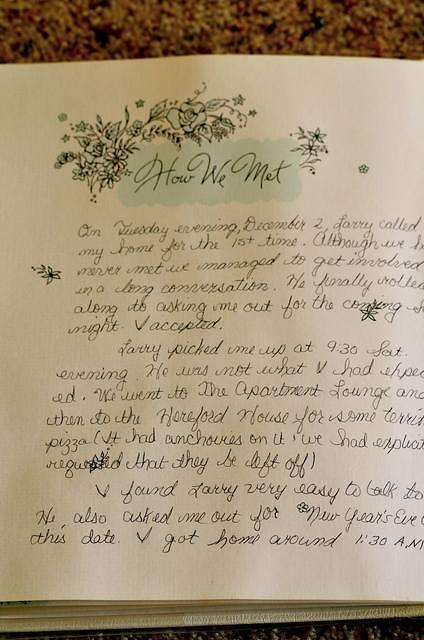 How We Met
On Tuesday evening, December 2, Larry called
my home for the 1st time. Although we h
never met we managed to get involved
in a long conversation. He finally rolled
along to asking me out for the coming S
night. I accepted.
Larry picked me up at 9:30 Sat.
evening. He was not what I had expec
ed. We went to The Apartment Lounge and
then to the Hereford House for some terri
pizza (It had anchovies on it & we had explicit
requested that they be left off!)
I found Larry very easy to talk to
He also asked me out for New Year's Eve
this date. I got home around 1:30 A.M